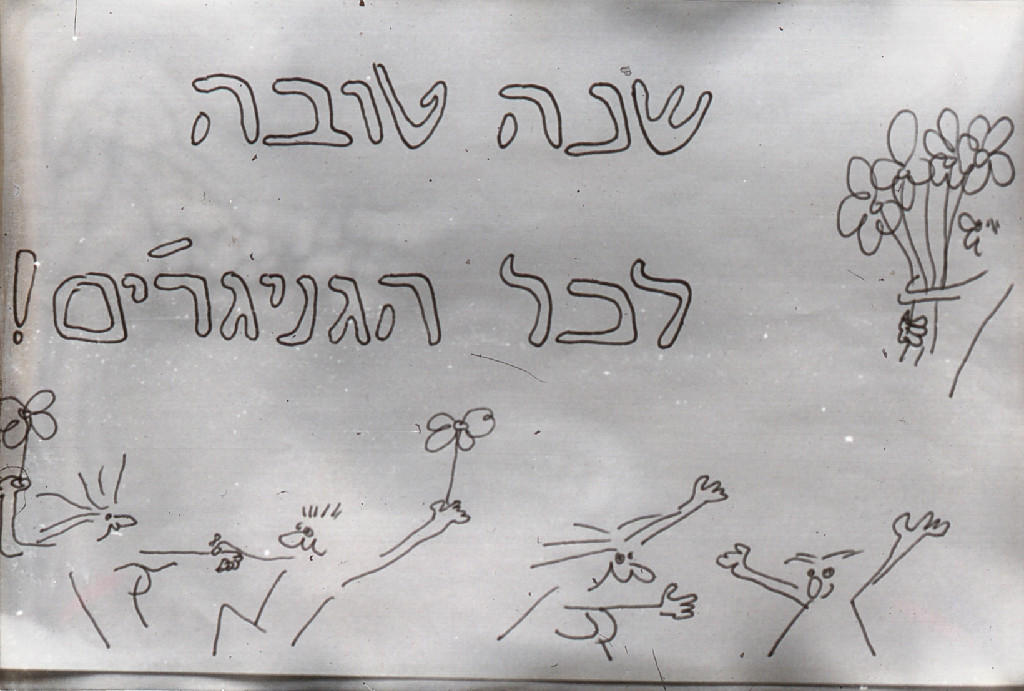 שנה טובה
לכל הגניגרים!